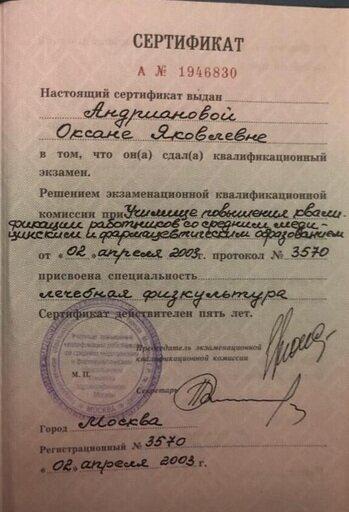 СЕРТИФИКАТ
А № 1946830
Настоящий сертификат выдан
Андриановой
Оксане Яковлевне
в том, что он(а) сдал(а) квалификационный
экзамен.
Решением экзаменационной квалификационной
комиссии при Училище повышения квали-
фикации работников со средним меди-
цинским и фармацевтическим образованием
от «02» апреля 2003г. протокол № 3570
присвоена специальность
лечебная физкультура
Сертификат действителен пять лет.
Председатель экзаменационной
квалификационной комиссии
М. П.
Секретарь
Город Москва
Регистрационный № 3570
«02» апреля 2003 г.